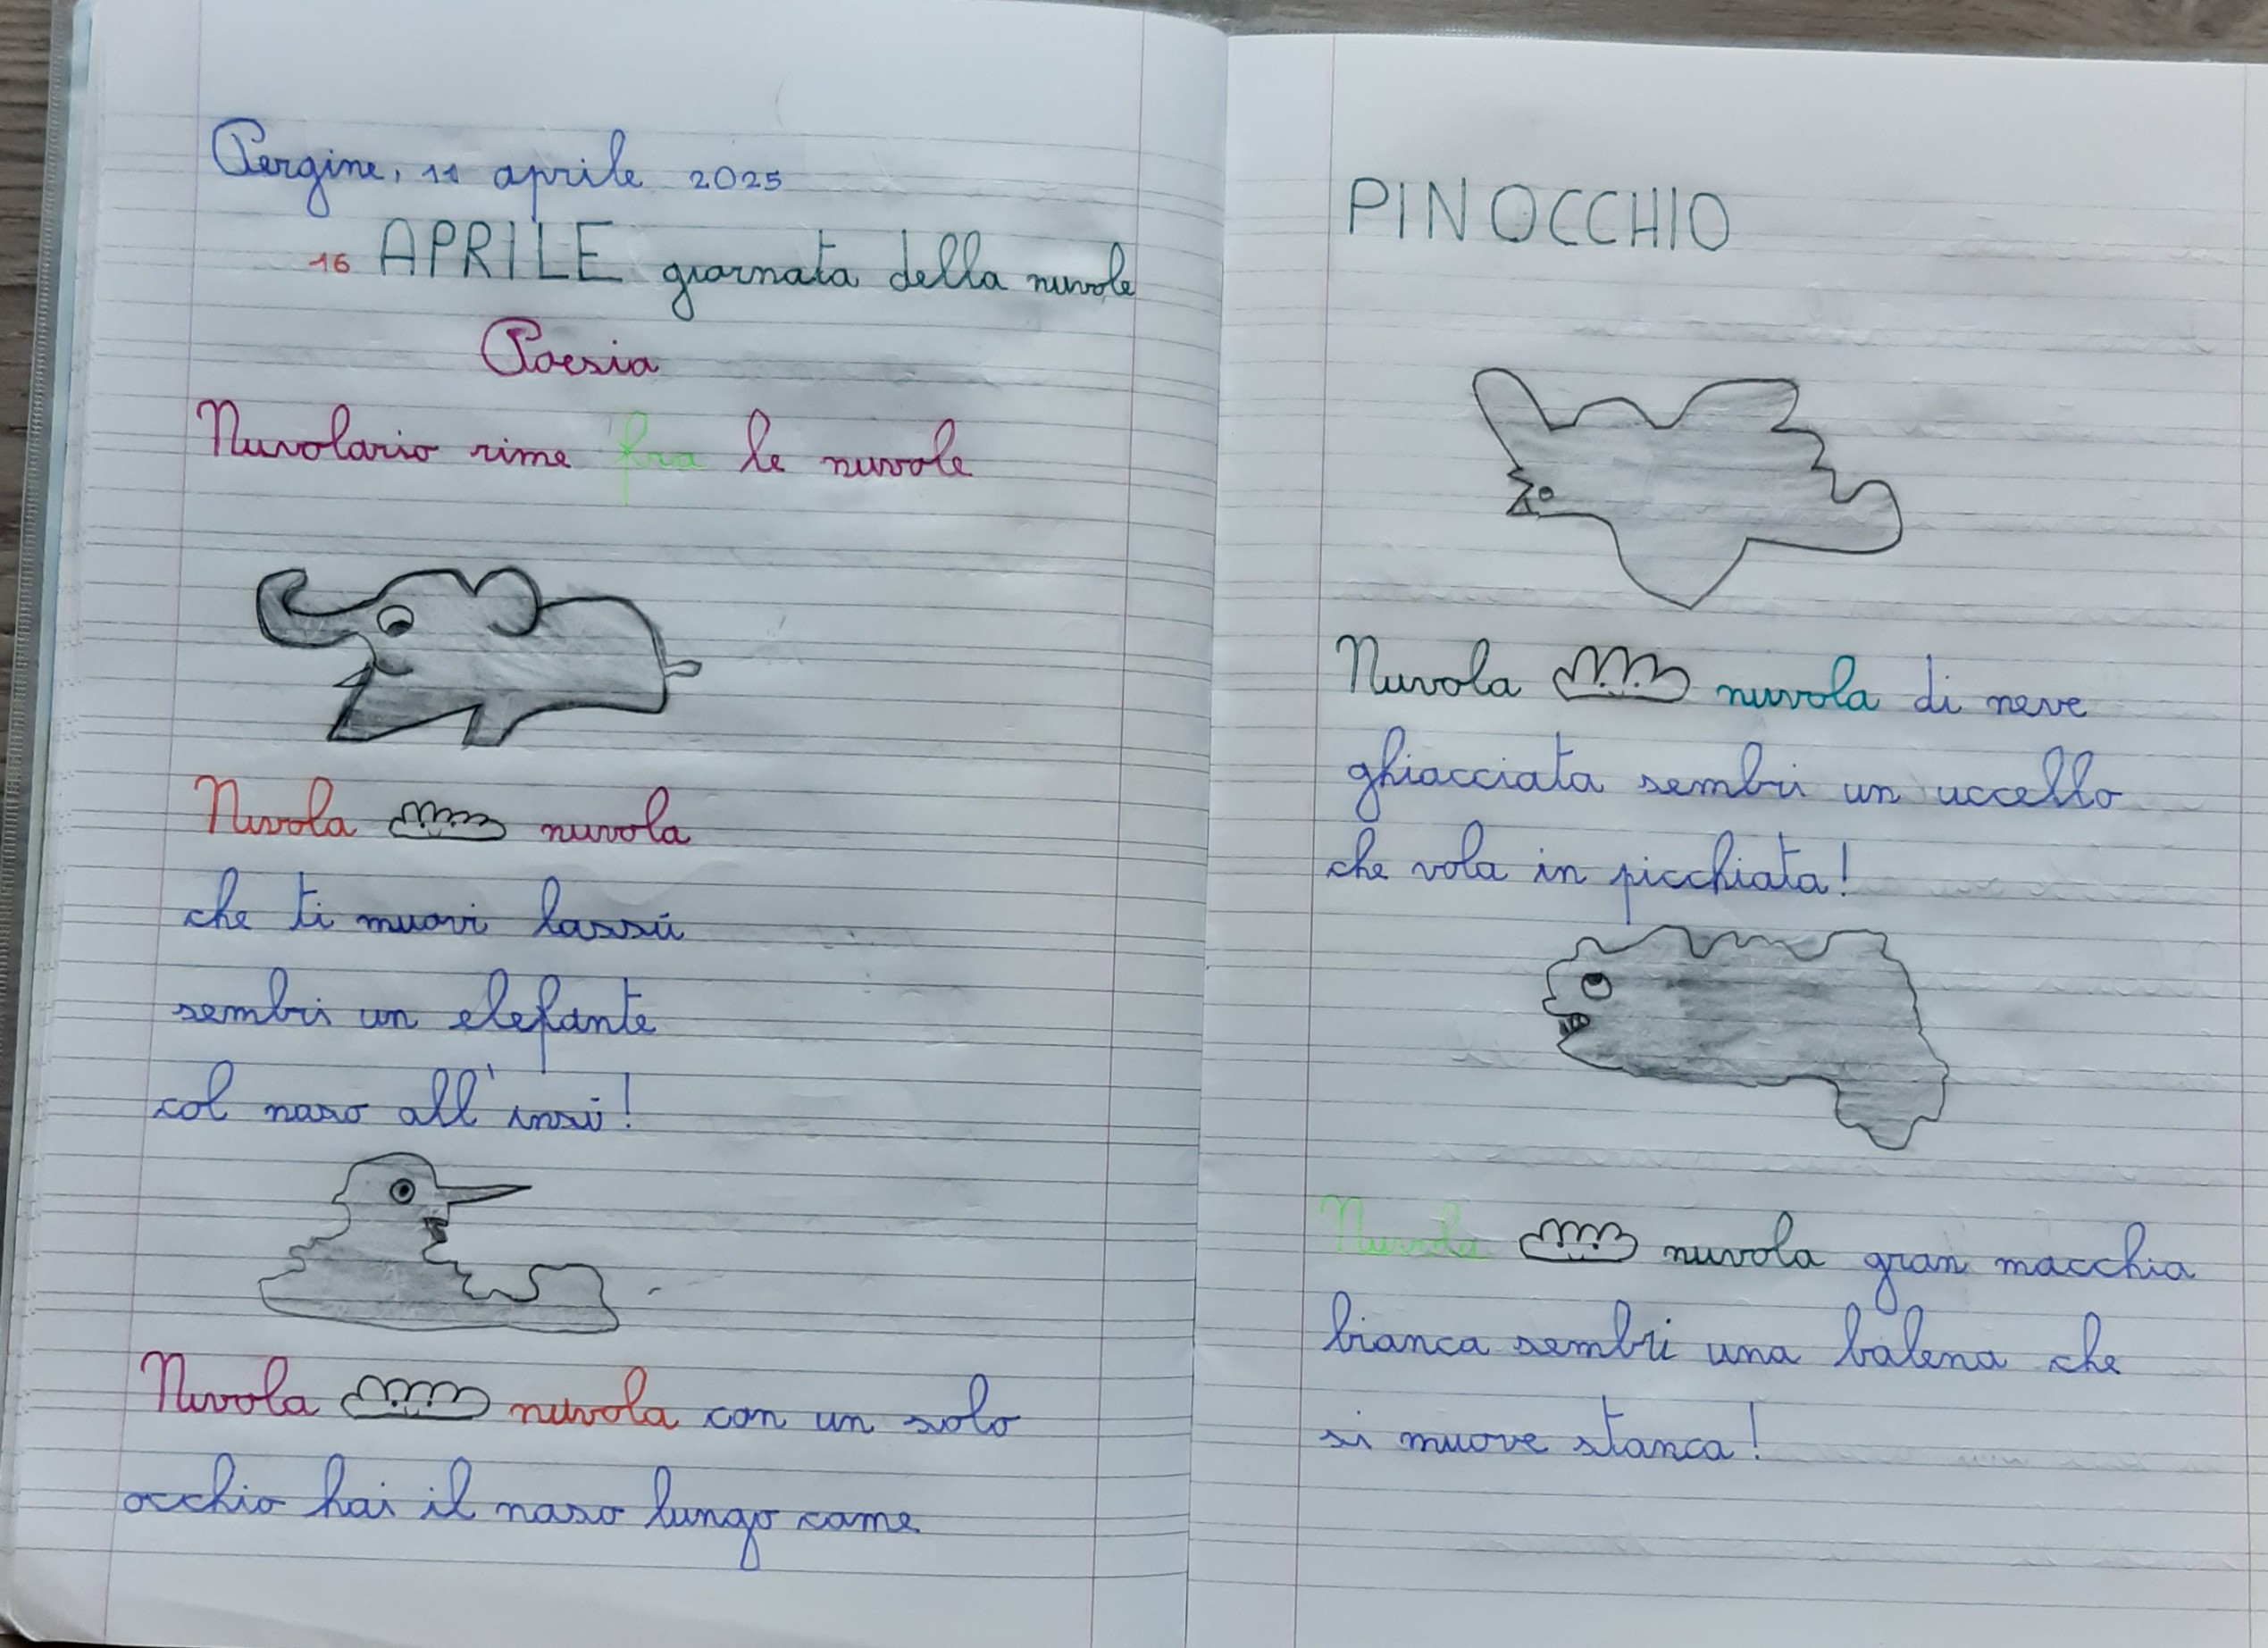 Pergine, 11 aprile 2025
16 APRILE giornata della nuvole
Poesia
Nuvolario rime fra le nuvole
Nuvola nuvola
che ti muovi lassú
sembri un elefante
col naso all'insú!
Nuvola nuvola con un solo
occhio hai il naso lungo come
PINOCCHIO
Nuvola nuvola di neve
ghiacciata sembri un uccello
che vola in picchiata!
Nuvola nuvola gran macchia
bianca sembri una balena che
si muove stanca!